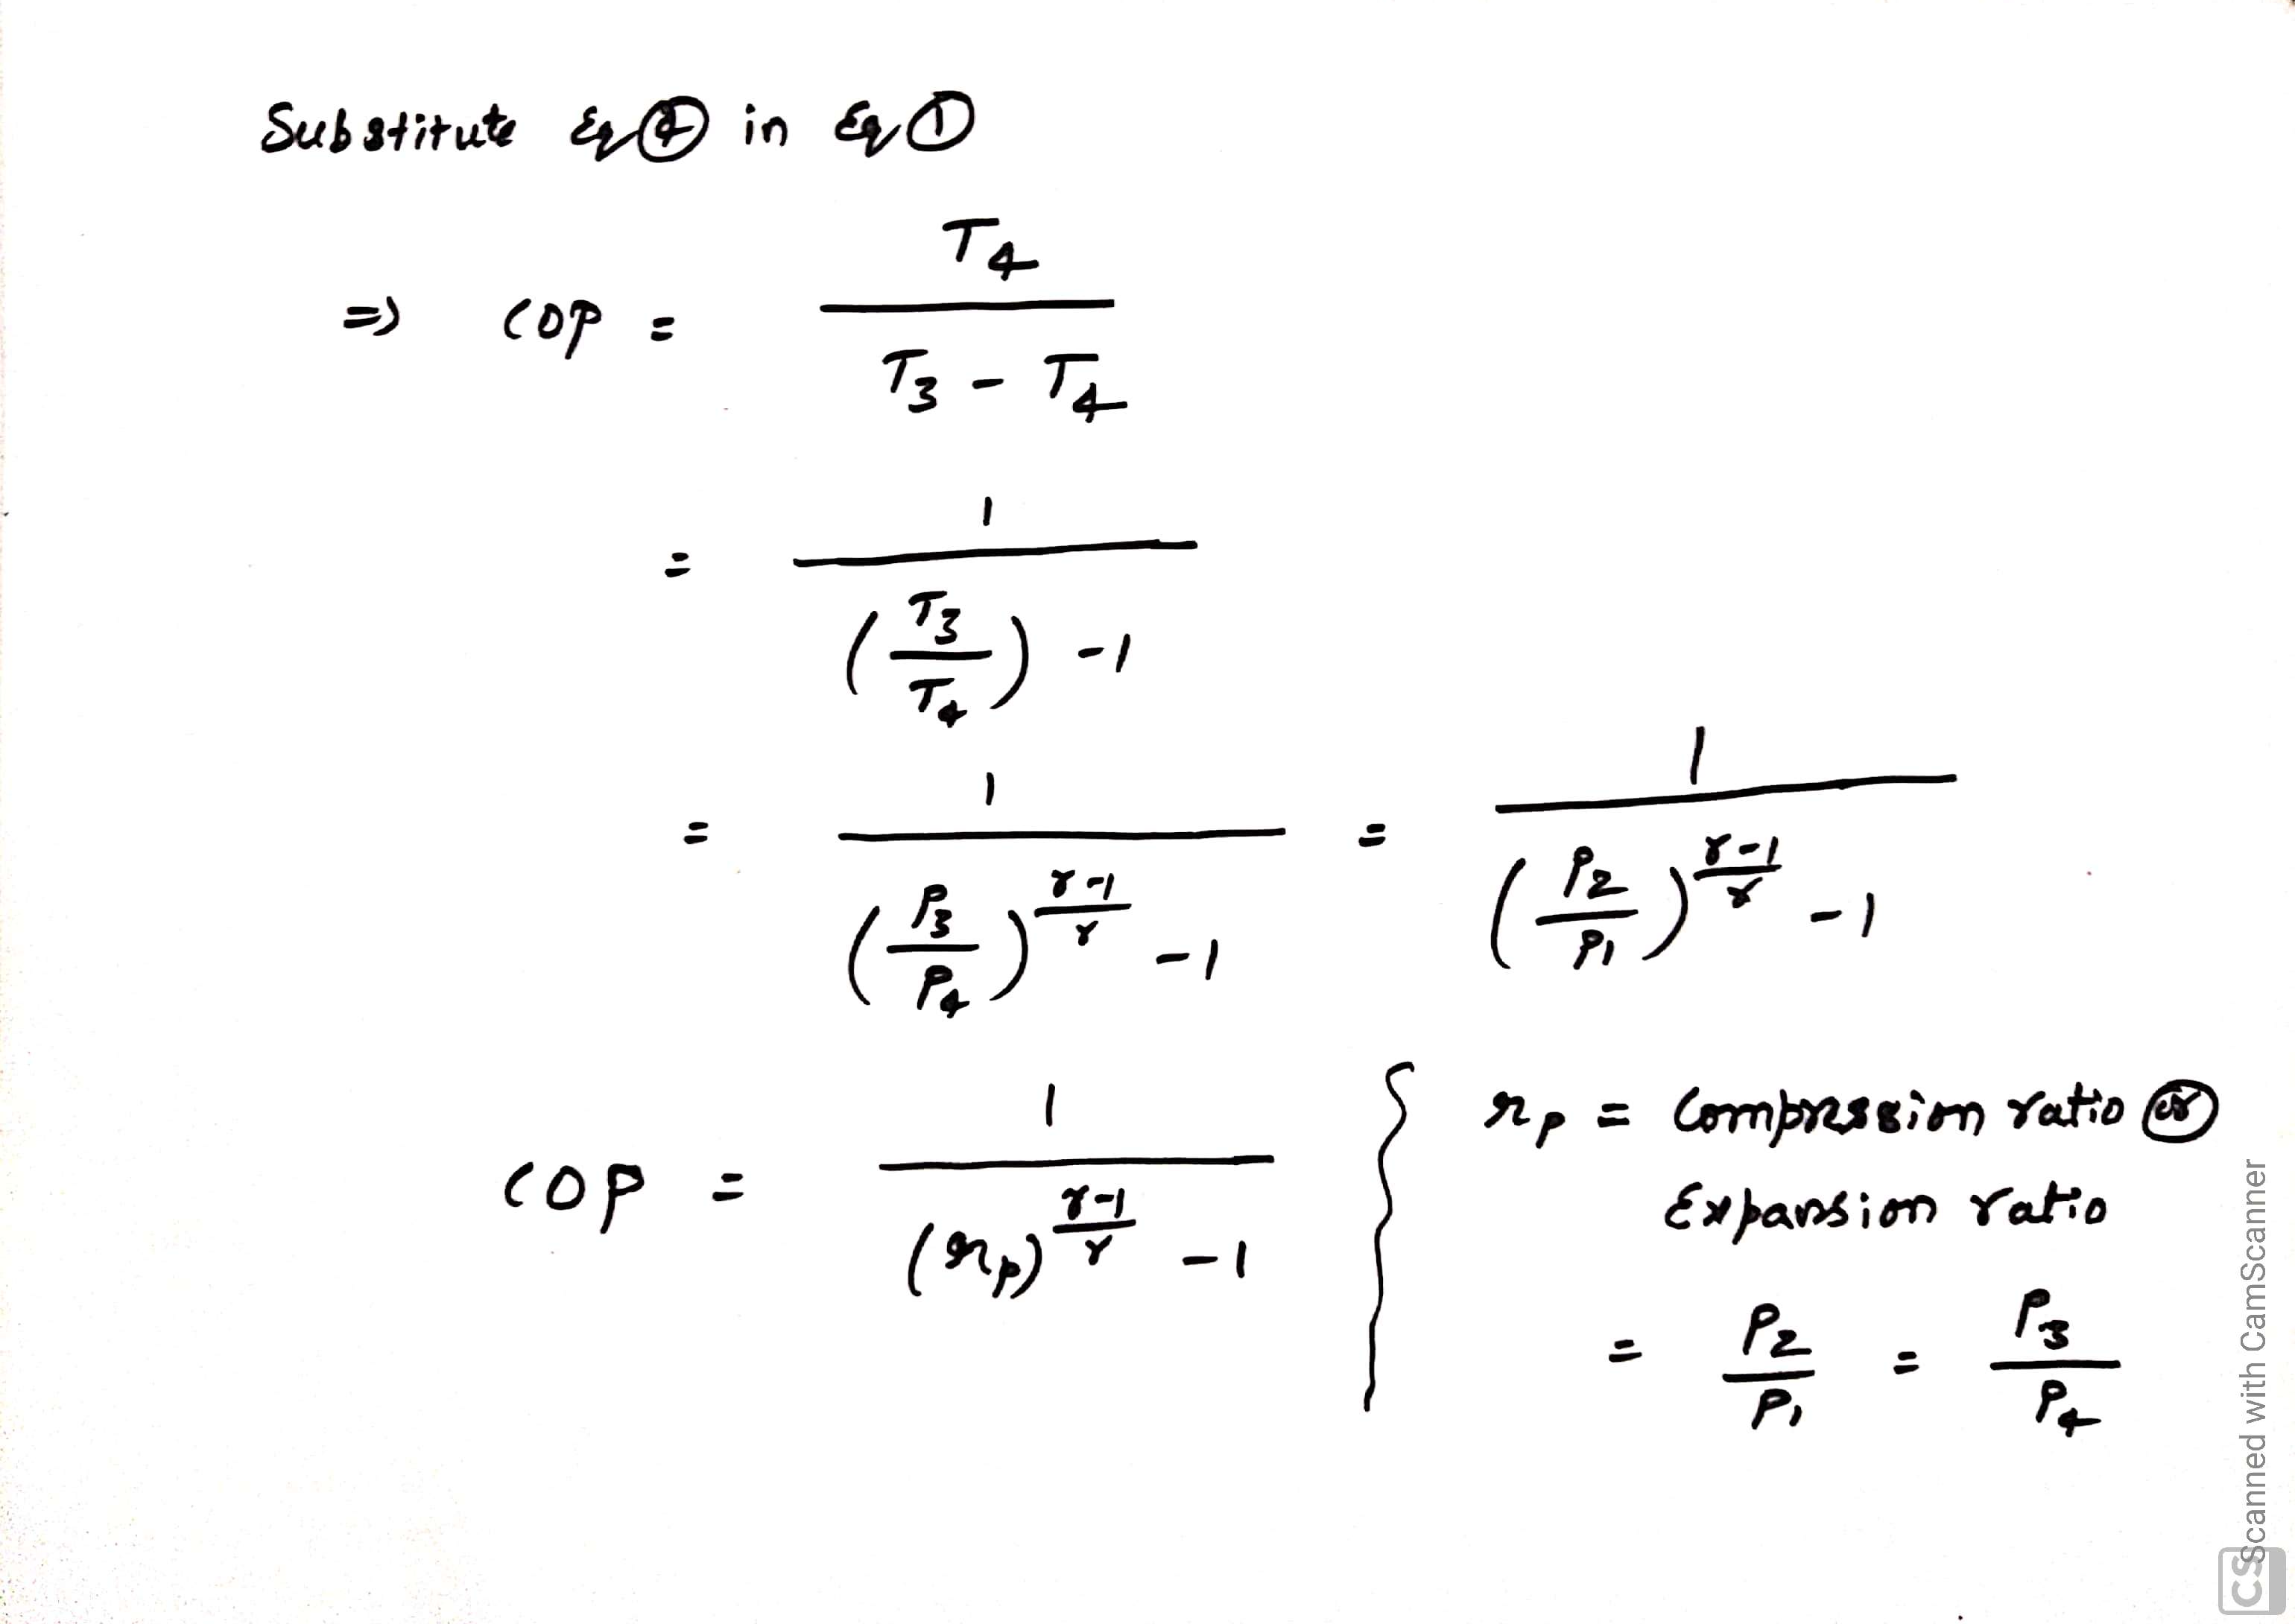 Substitute Eq ④ in Eq ①
⇒ COP = T₄ / (T₃ - T₄)
= 1 / ((T₃/T₄) - 1)
= 1 / ((P₃/P₄)^((γ-1)/γ) - 1) = 1 / ((P₂/P₁)^((γ-1)/γ) - 1)
COP = 1 / ((rₚ)^((γ-1)/γ) - 1)
rₚ = Compression ratio (or)
Expansion ratio
= P₂/P₁ = P₃/P₄
CS Scanned with CamScanner